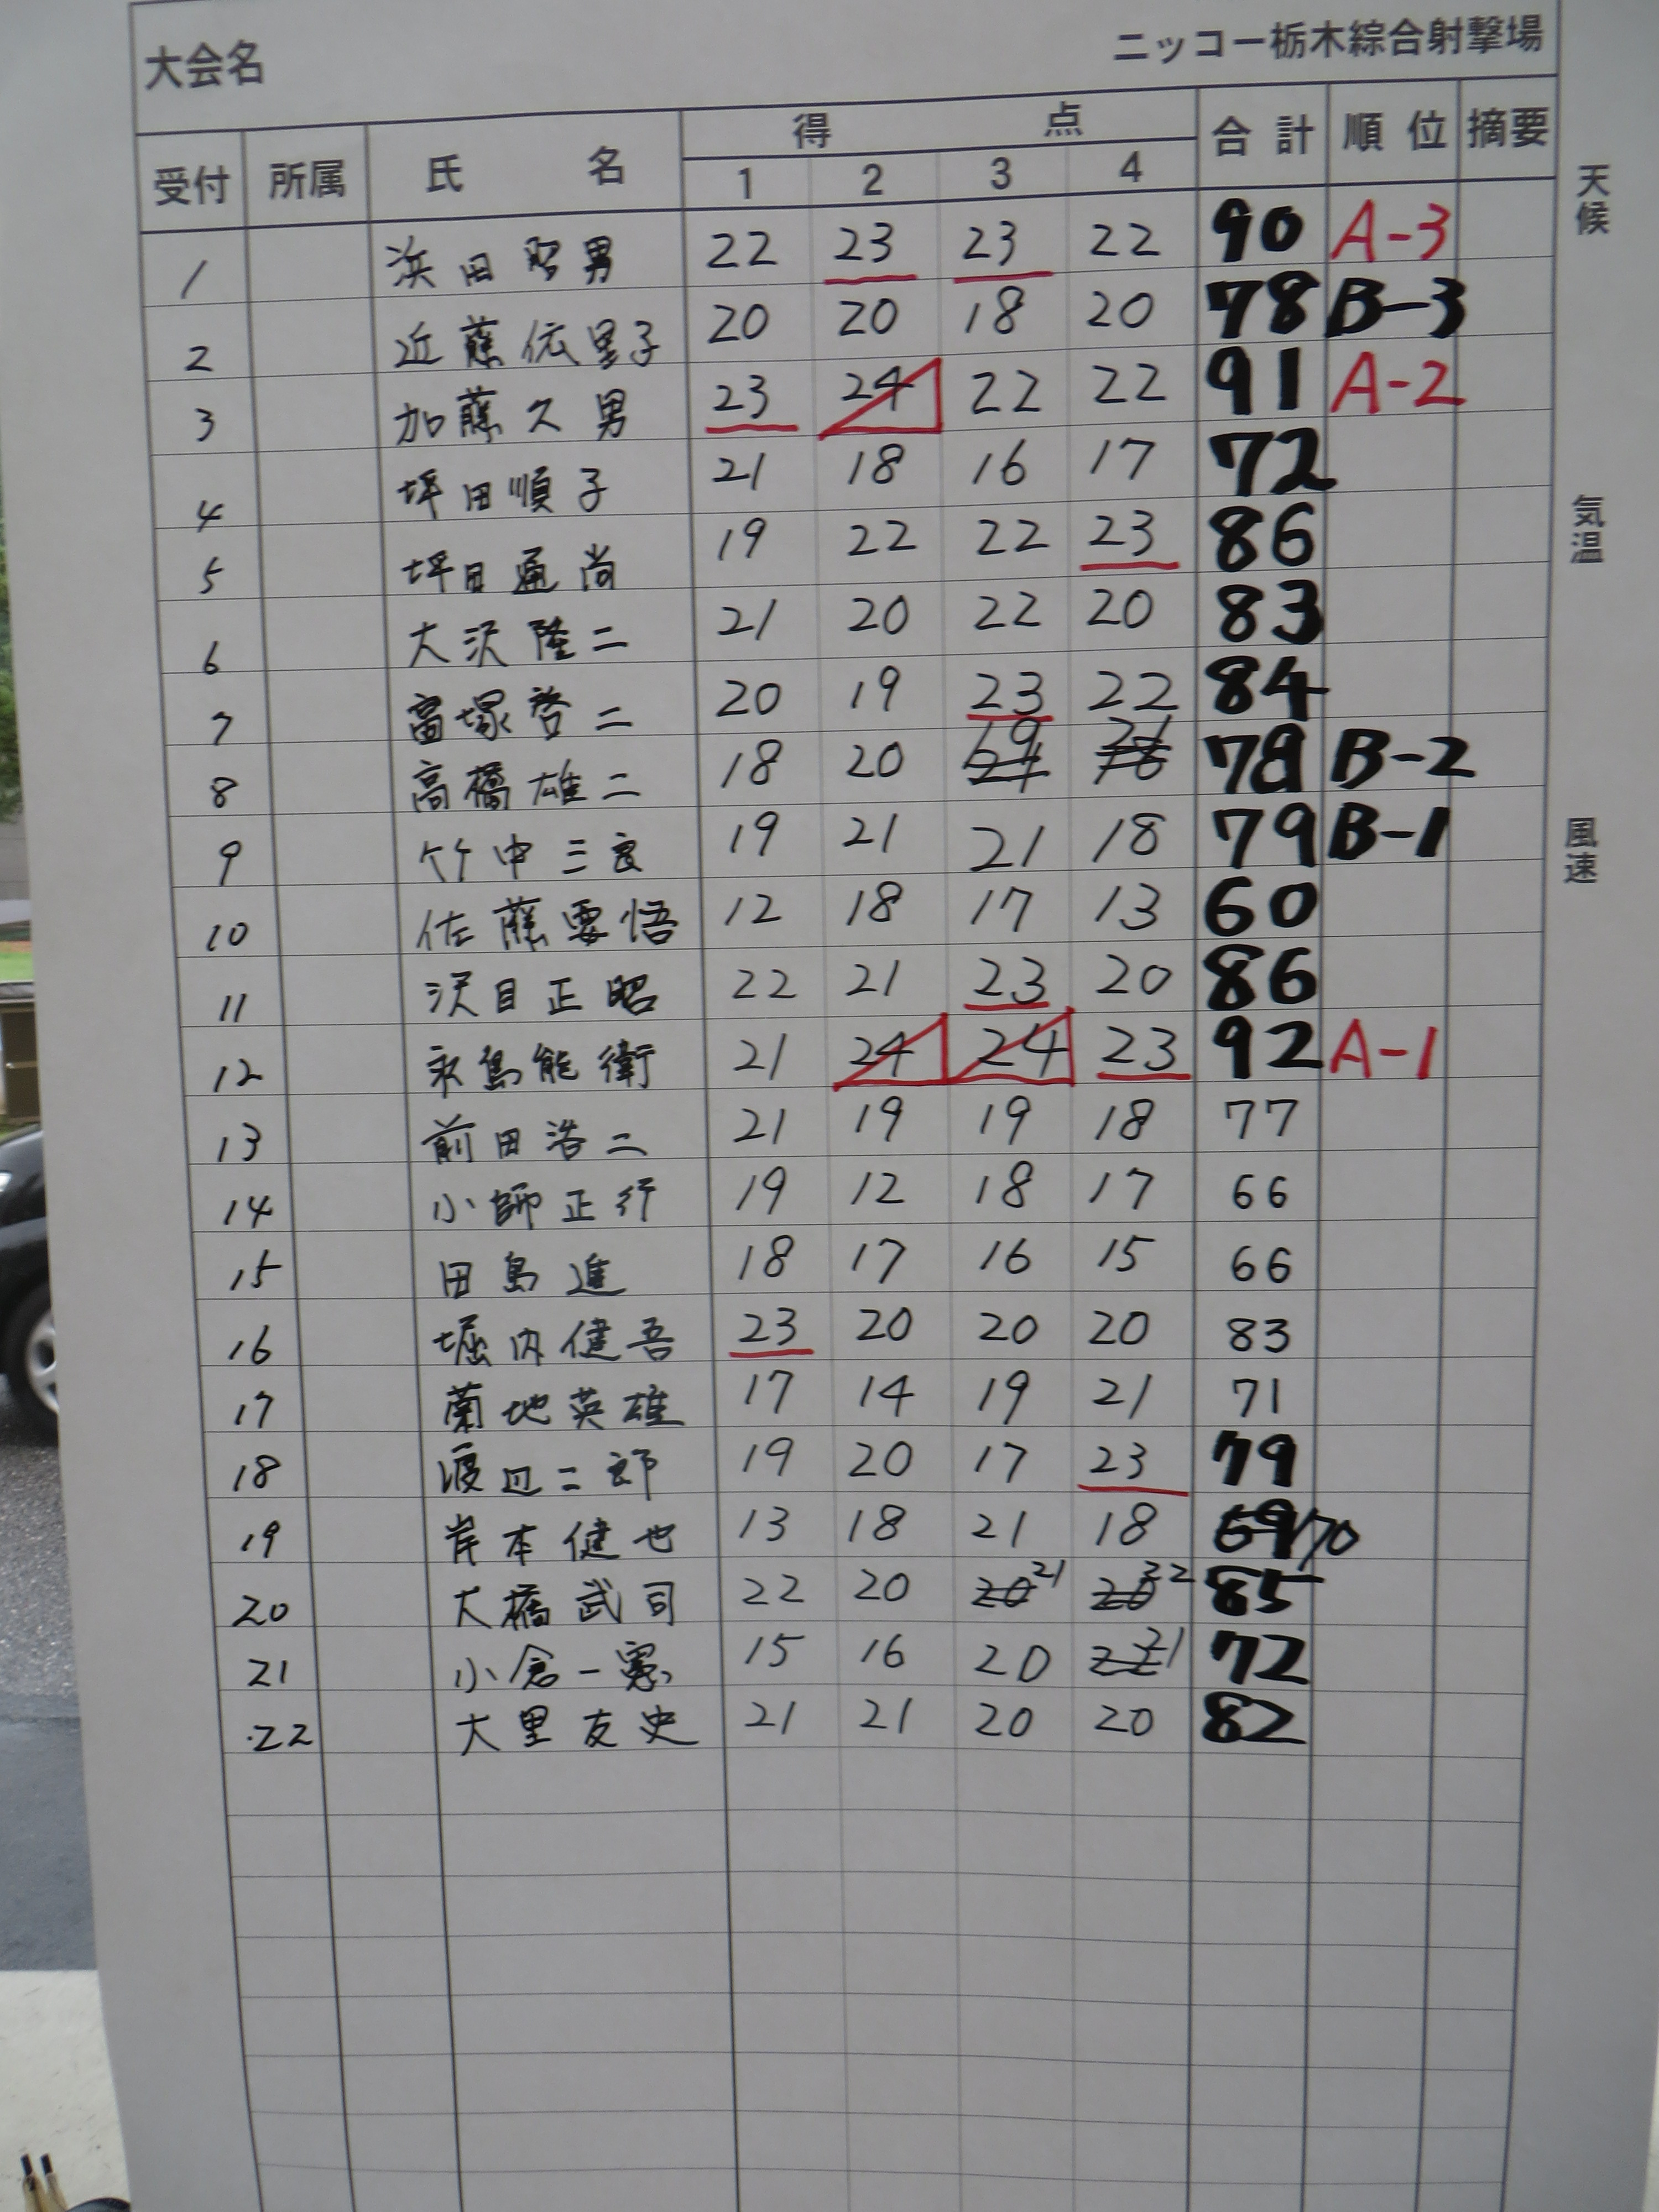 大会名 ニッコー栃木綜合射撃場
受付 所属 氏名 得点 合計 順位 摘要
1 2 3 4
1 浜田昭男 22 23 23 22 90 A-3
2 近藤依里子 20 20 18 20 78 B-3
3 加藤久男 23 24 22 22 91 A-2
4 坪田順子 21 18 16 17 72
5 坪田通尚 19 22 22 23 86
6 大沢隆二 21 20 22 20 83
7 富塚啓二 20 19 23 22 84
8 高橋雄二 18 20 19 21 78 B-2
9 竹中三良 19 21 21 18 79 B-1
10 佐藤要悟 12 18 17 13 60
11 沢目正昭 22 21 23 20 86
12 永島能衛 21 24 24 23 92 A-1
13 前田浩二 21 19 19 18 77
14 小師正行 19 12 18 17 66
15 田島進 18 17 16 15 66
16 堀内健吾 23 20 20 20 83
17 菊地英雄 17 14 19 21 71
18 渡辺二郎 19 20 17 23 79
19 岸本健也 13 18 21 18 69 70
20 大橋武司 22 20 20 21 20 22 85
21 小倉一憲 15 16 20 22 21 72
22 大里友史 21 21 20 20 82
天候
気温
風速